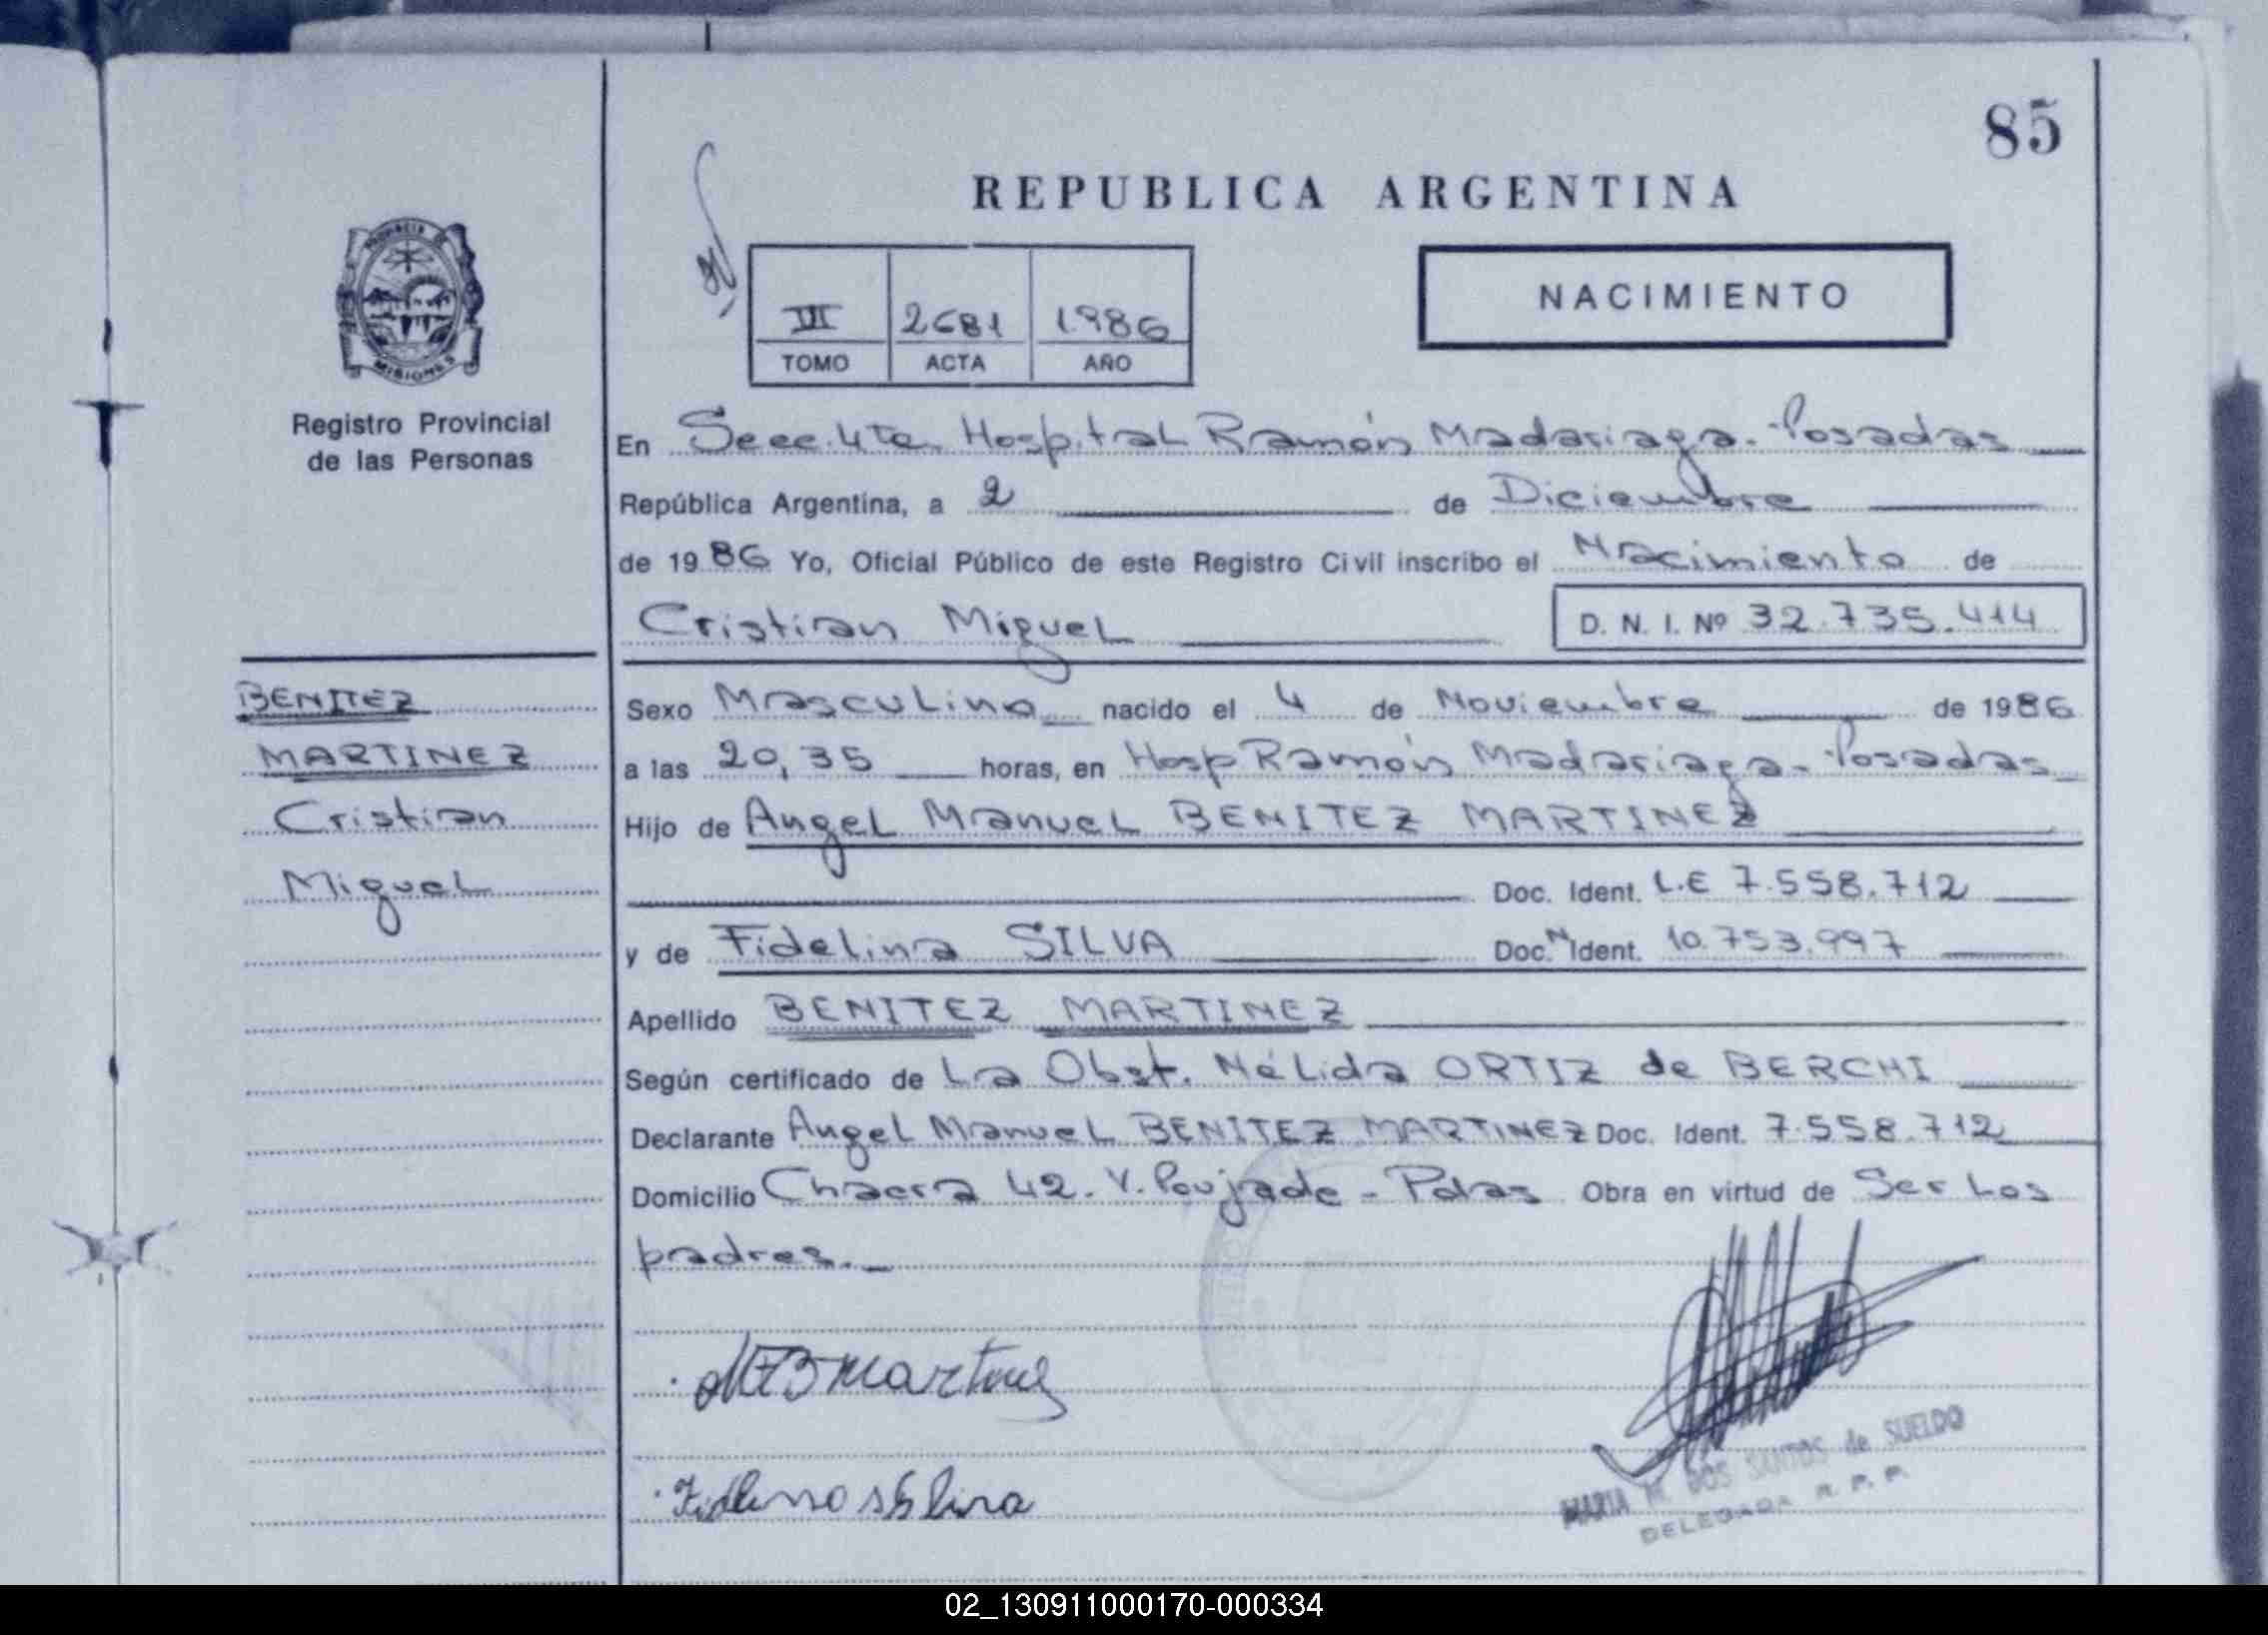 85
REPUBLICA ARGENTINA
NACIMIENTO
VII 2681 1986
TOMO ACTA AÑO
PROVINCIA DE
MISIONES
Registro Provincial
de las Personas
En Secc. 4ta. Hospital Ramón Madariaga - Posadas
República Argentina, a 2 de Diciembre
de 1986 Yo, Oficial Público de este Registro Civil inscribo el Nacimiento de
Cristian Miguel D. N. I. Nº 32.735.414
BENITEZ
MARTINEZ
Cristian
Miguel
Sexo Masculino nacido el 4 de Noviembre de 1986
a las 20,35 horas, en Hosp Ramón Madariaga - Posadas
Hijo de Angel Manuel BENITEZ MARTINEZ
Doc. Ident. L.E 7.558.712
y de Fidelina SILVA Doc. N Ident. 10.753.997
Apellido BENITEZ MARTINEZ
Según certificado de La Obst. Nélida ORTIZ de BERCHI
Declarante Angel Manuel BENITEZ MARTINEZ Doc. Ident. 7.558.712
Domicilio Chacra 42. V. Poujade - Pdas Obra en virtud de Ser Los
padres.
MARIA M. DOS SANTOS de SUELDO
DELEGADA R. P. P.
02_130911000170-000334